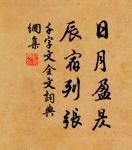 日月盈昃
辰宿列張
千字文全文詞典
網集